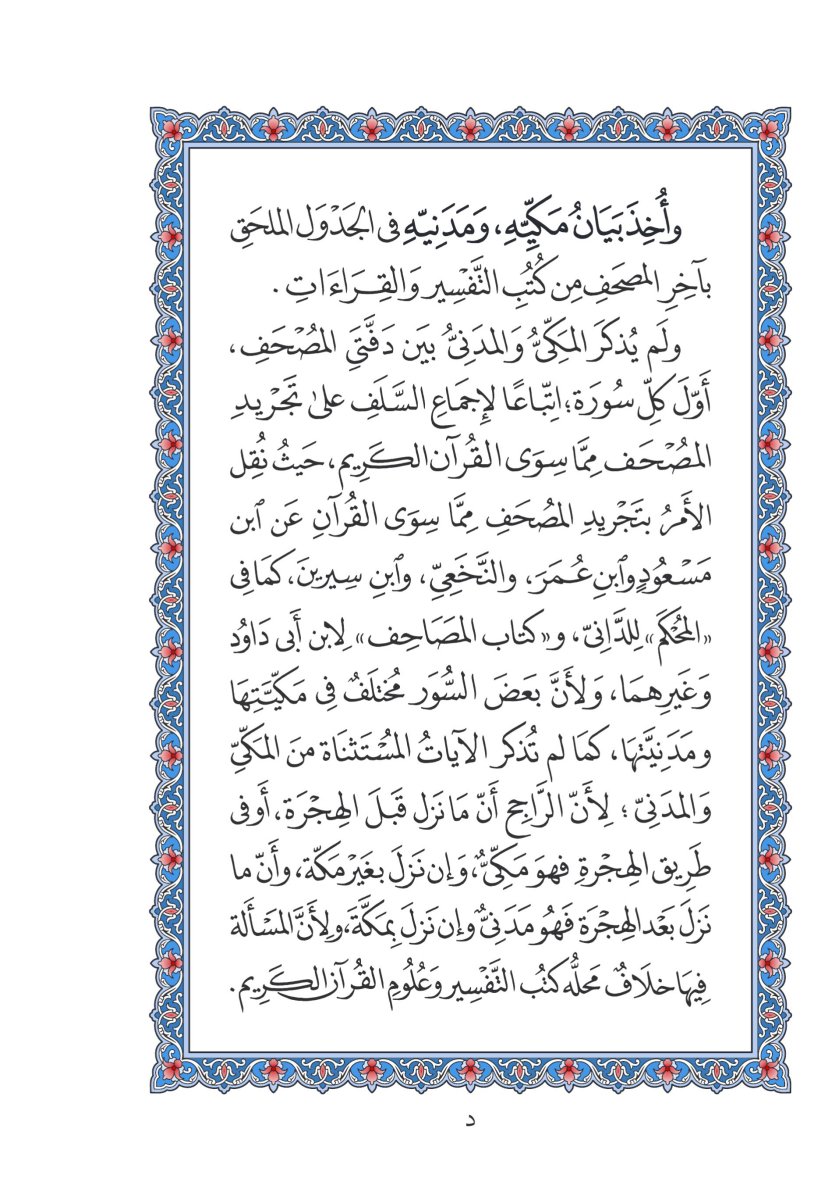 وأُخِذَ بَيَانُ مَكِّيِّهِ، وَمَدَنِيِّهِ فى الجَدْوَل الملحَقِ
بآخِرِ المصحَفِ مِن كُتُبِ التَّفْسِير وَالقِرَاءَاتِ .
ولَم يُذكَرَ المَكِّىُّ وَالمدَنِىُّ بَيَن دَفَّتَىِ المصُحَفِ،
أَوّلَ كلِّ سُورَة؛ اتِّبَاعًا لإِجمَاعِ السَّلَفِ علىٰ تَجْرِيدِ
المصُحَف مِمَّا سِوَى القُرآن الكَرِيم، حَيثُ نُقِل
الأَمرُ بتَجْرِيدِ المصُحَفِ مِمَّا سِوَى القُرآنِ عَن ٱبن
مَسْعُودٍ وٱبنِ عُمَرَ، والنَّخَعِيِّ، وٱبنِ سِيرينَ، كمَا فِى
«المُحْكَم» لِلدَّانِىّ، و«كتاب المصَاحِف» لِابن أَبى دَاوُد
وَغَيرِهمَا، وَلأَنَّ بَعضَ السُّوَر مُختلَفٌ فِى مَكيِّتِهَا
ومَدَنِيَّتهَا، كمَا لم تُذكر الآيَاتُ المسُتَثنَاة منَ المَكِّىِّ
وَالمدَنِىّ ؛ لِأَنّ الرَّاجِح أَنّ مَا نَزل قَبلَ الهِجْرَة، أَو فى
طَرِيق الهِجْرةِ فهوَ مَكِّىٌّ، وَإن نَزلَ بغَيْر مَكّة، وأَنّ ما
نَزلَ بَعْد الهِجْرَة فَهُو مَدَنىٌّ وإن نَزلَ بِمَكَّةَ، ولِأَنَّ المَسْأَلة
فِيهَا خلَافٌ مَحلُّه كتُبُ التَّفْسِير وَعُلُومِ القُرآن الكَرِيم.
د